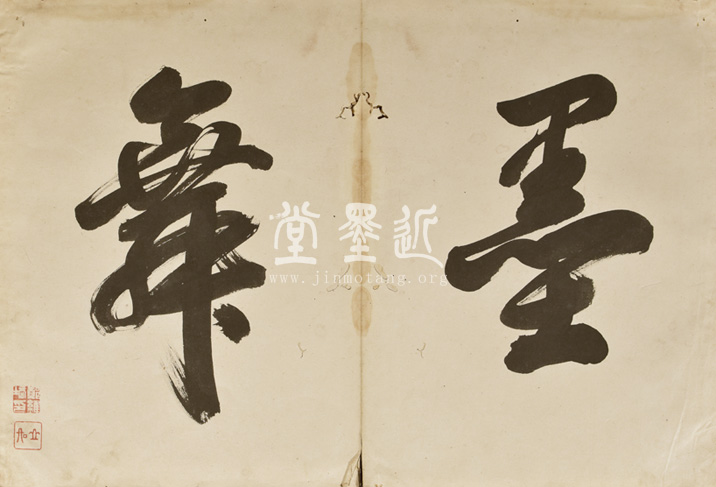 墨舞
近墨堂
www.jinmotang.org